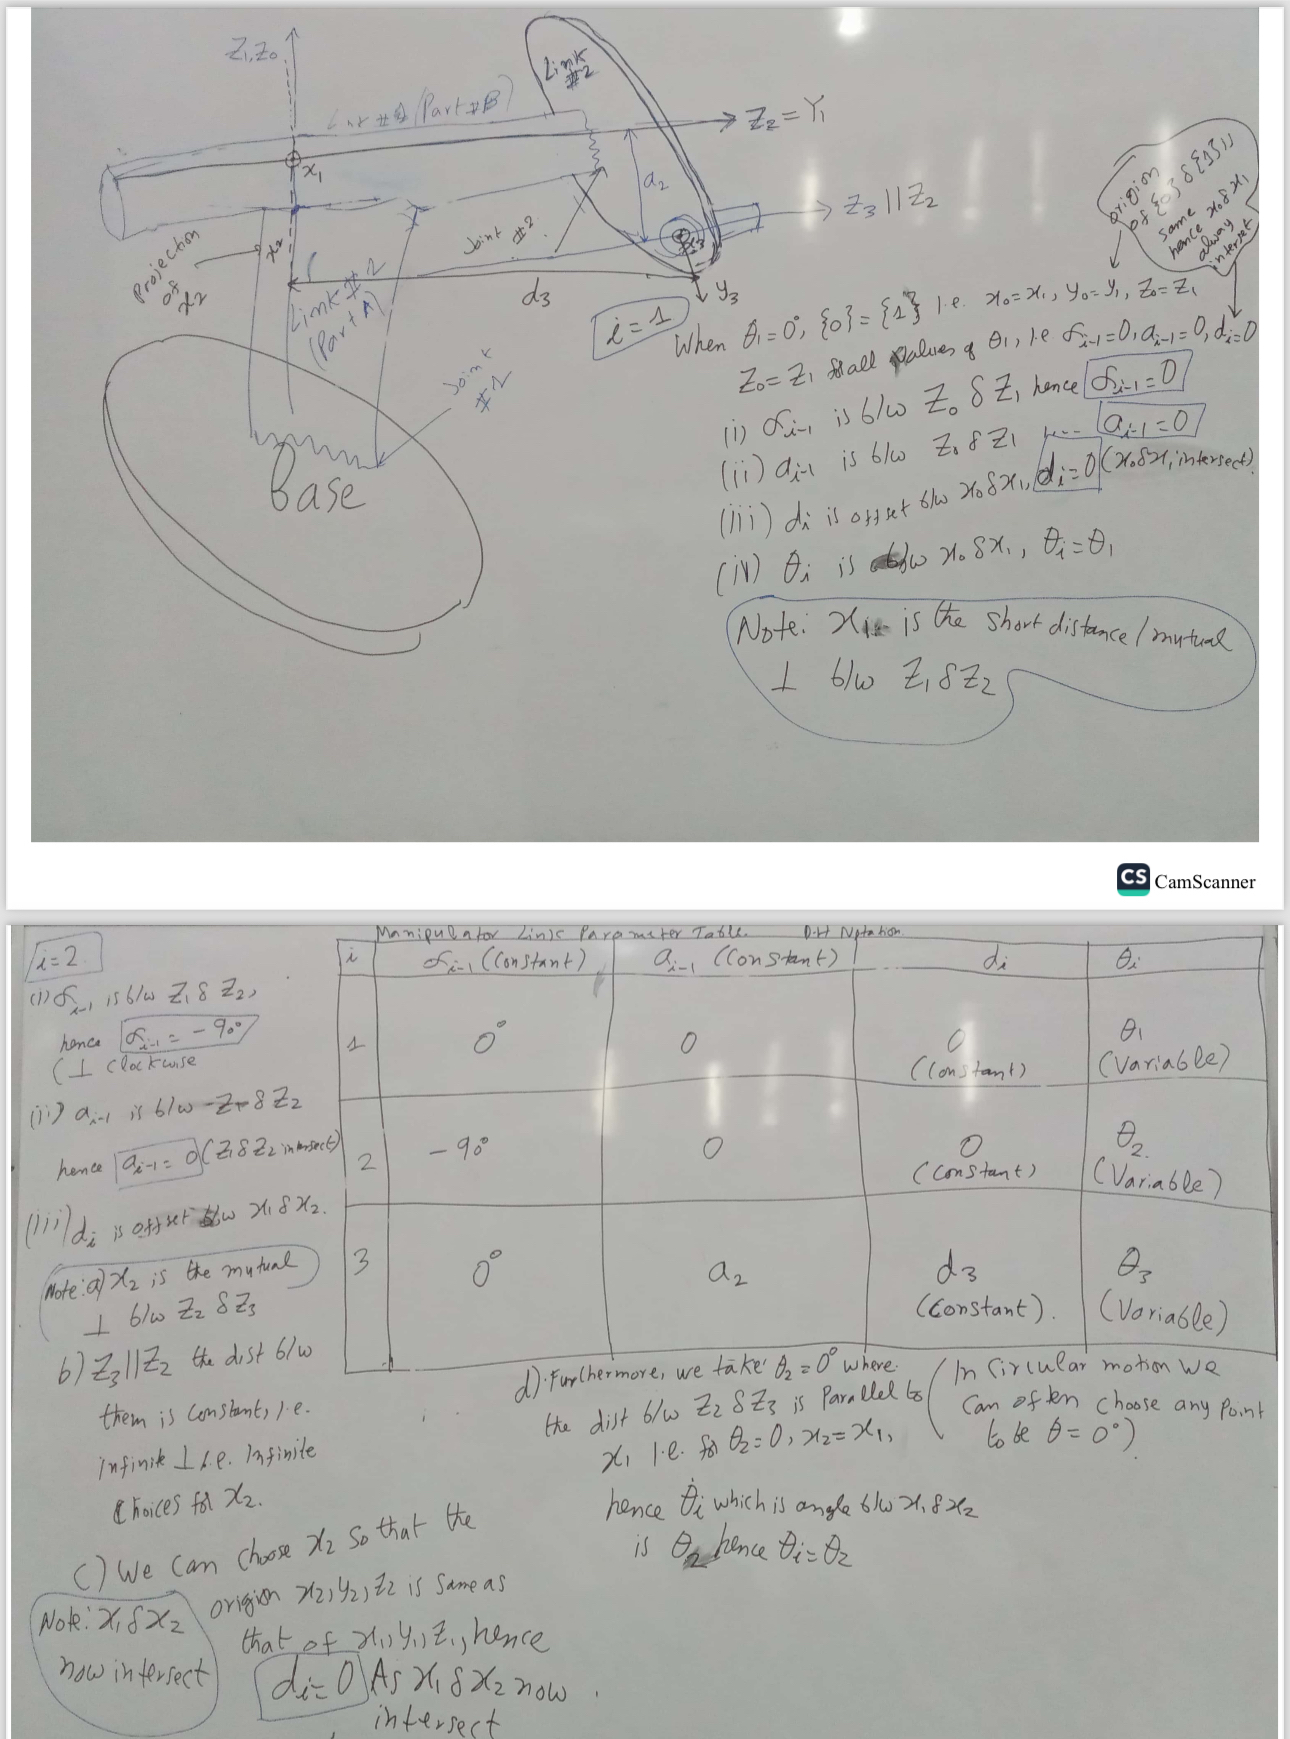 Z₁, Z₀
Link #2
(Part #B)
Z₂ = Y₁
x₁
a₂
Z₃ || Z₂
Joint #2
x₃
Projection
of
x₂
x₂
d₃
Y₃
Link #1
(Part A)
Joint
#1
Base
origion
of {0} & {1}
same
hence x₀ & x₁
alway
interset
i = 1
When θ₁ = 0°, {0} = {1} i.e. x₀ = x₁, y₀ = y₁, Z₀ = Z₁
Z₀ = Z₁ for all values of θ₁, i.e αᵢ₋₁ = 0, aᵢ₋₁ = 0, dᵢ = 0
(i) αᵢ₋₁ is b/w Z₀ & Z₁ hence αᵢ₋₁ = 0
(ii) aᵢ₋₁ is b/w Z₀ & Z₁ ,,--- aᵢ₋₁ = 0
(iii) dᵢ is offset b/w x₀ & x₁, dᵢ = 0 (x₀ & x₁ intersect)
(iv) θᵢ is b/w x₀ & x₁, θᵢ = θ₁
Note: x₁ is the short distance / mutual
⊥ b/w Z₁ & Z₂
CS CamScanner
i = 2
(i) αᵢ₋₁ is b/w Z₁ & Z₂,
hence αᵢ₋₁ = -90°
(⊥ clockwise
(ii) aᵢ₋₁ is b/w Z₁ & Z₂
hence aᵢ₋₁ = 0 (Z₁ & Z₂ intersect)
(iii) dᵢ is offset b/w x₁ & x₂.
Note: a) x₂ is the mutual
⊥ b/w Z₂ & Z₃
b) Z₃ || Z₂ the dist b/w
them is constant, i.e.
infinite ⊥ i.e. Infinite
Choices for x₂.
c) We can choose x₂ so that the
origion x₂, y₂, Z₂ is same as
that of x₁, y₁, Z₁, hence
dᵢ = 0 As x₁ & x₂ now
intersect
Note: x₁ & x₂
now intersect
Manipulator Link Parameter Table. D-H Notation
i αᵢ₋₁ (Constant) aᵢ₋₁ (Constant) dᵢ θᵢ
1 0° 0 0 (Constant) θ₁ (Variable)
2 -90° 0 0 (Constant) θ₂ (Variable)
3 0° a₂ d₃ (Constant). θ₃ (Variable)
d) Furthermore, we take θ₂ = 0° where
the dist b/w Z₂ & Z₃ is Parallel to
x₁ i.e. for θ₂ = 0, x₂ = x₁,
hence θᵢ which is angle b/w x₁ & x₂
is θ₂ hence θᵢ = θ₂
(In Circular motion we
can often choose any point
to be θ = 0°)